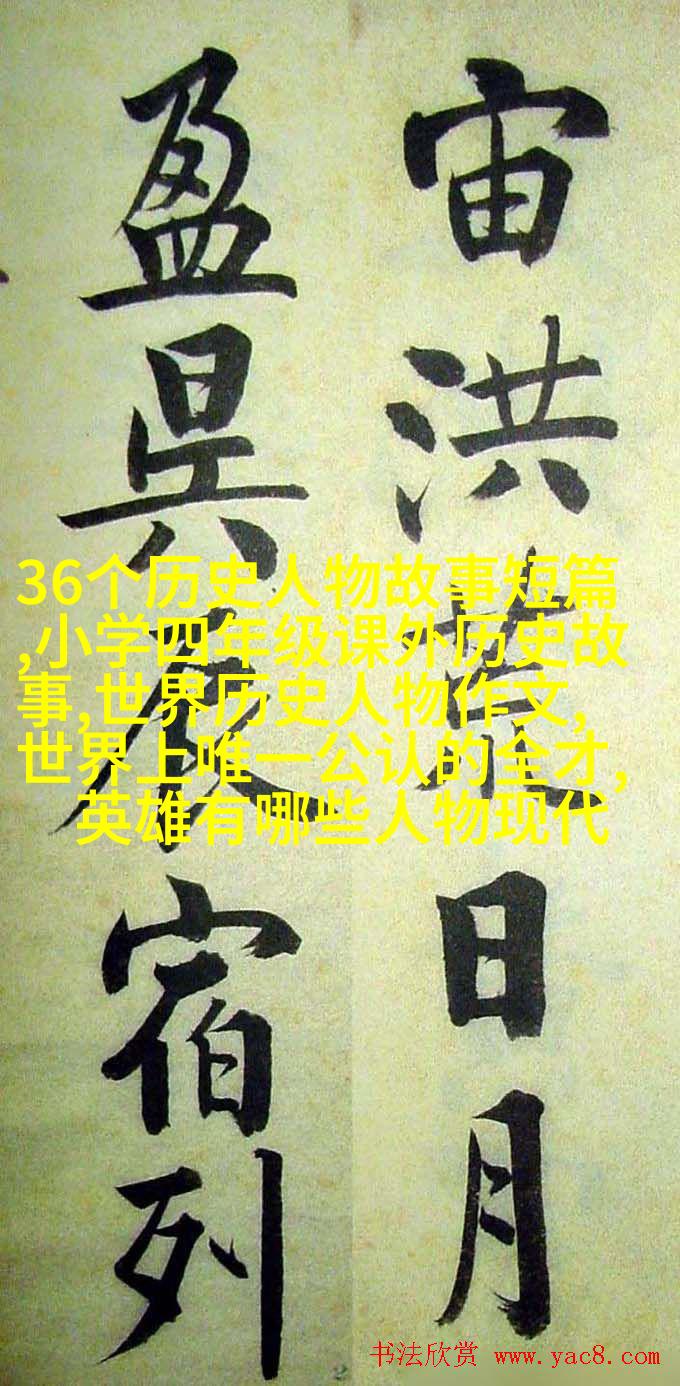 宙洪荒日月
盈昃辰宿列
36个历史人物故事短篇
,小学四年级课外历史故
事,世界历史人物作文,
世界上唯一公认的全才,
英雄有哪些人物现代
书法欣赏 www.yac8.com